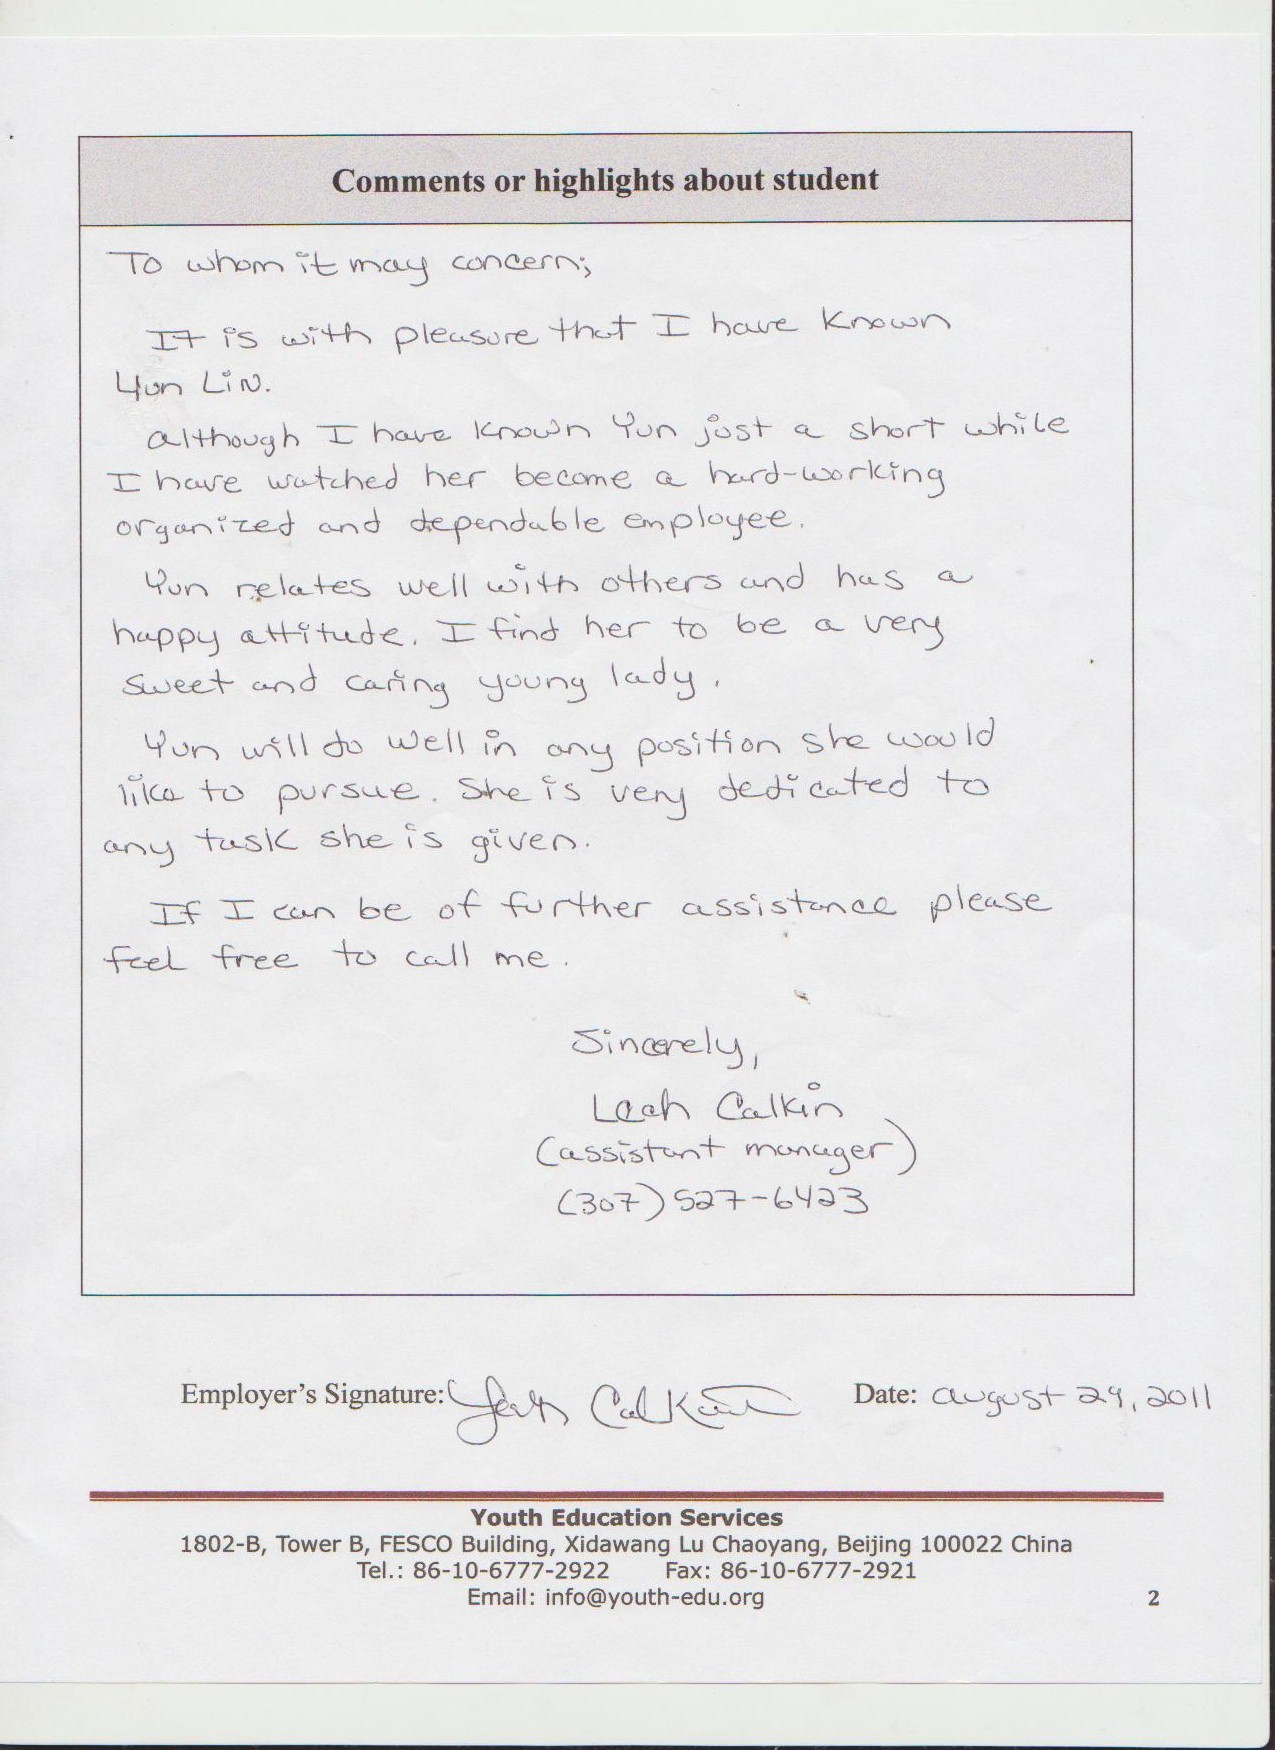 Comments or highlights about student
To whom it may concern;
It is with pleasure that I have known
Yun Lin.
Although I have known Yun just a short while
I have watched her become a hard-working
organized and dependable employee.
Yun relates well with others and has a
happy attitude. I find her to be a very
sweet and caring young lady.
Yun will do well in any position she would
like to pursue. She is very dedicated to
any task she is given.
If I can be of further assistance please
feel free to call me.
Sincerely,
Leah Calkin
(assistant manager)
(307) 527-6423
Employer's Signature: Leah Calkin Date: August 29, 2011
Youth Education Services
1802-B, Tower B, FESCO Building, Xidawang Lu Chaoyang, Beijing 100022 China
Tel.: 86-10-6777-2922 Fax: 86-10-6777-2921
Email: info@youth-edu.org
2